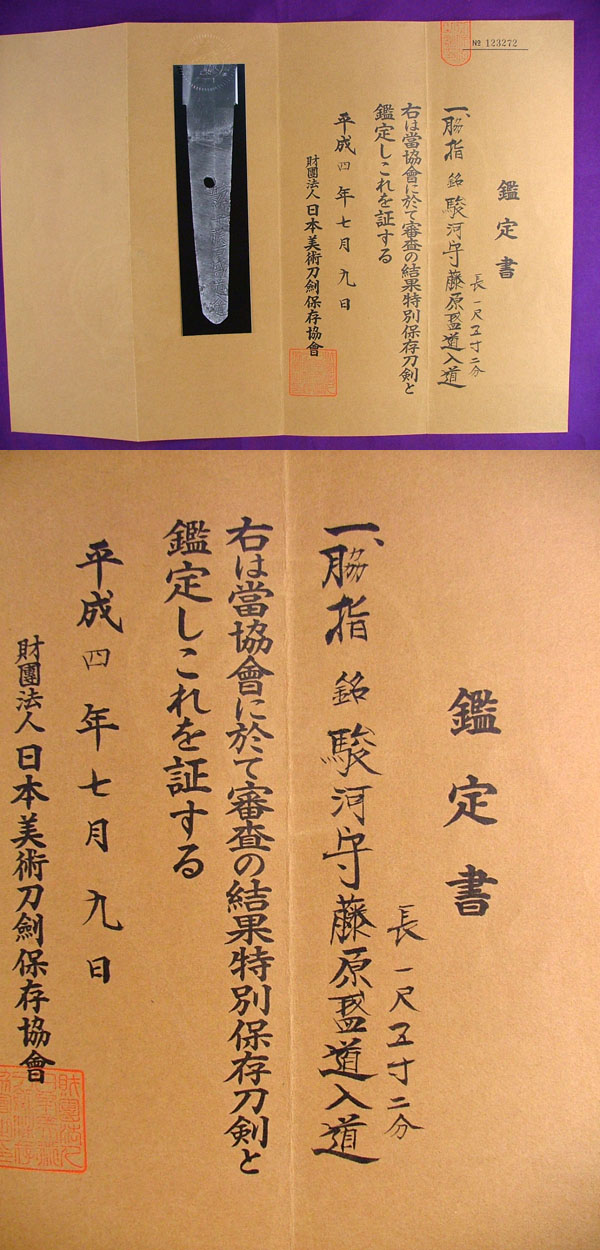 № 123272
鑑定書
一、脇指 銘 駿河守藤原盛道入道
長一尺五寸二分
右は當協會に於て審査の結果特別保存刀剣と
鑑定しこれを証する
平成四年七月九日
財團法人日本美術刀劍保存協會
鑑定書
一、脇指 銘 駿河守藤原盛道入道
長一尺五寸二分
右は當協會に於て審査の結果特別保存刀剣と
鑑定しこれを証する
平成四年七月九日
財團法人日本美術刀劍保存協會